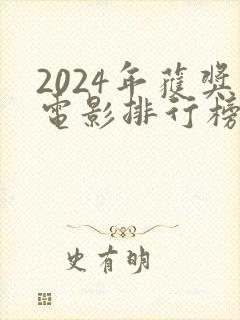 2024年获奖
电影排行榜
史有明